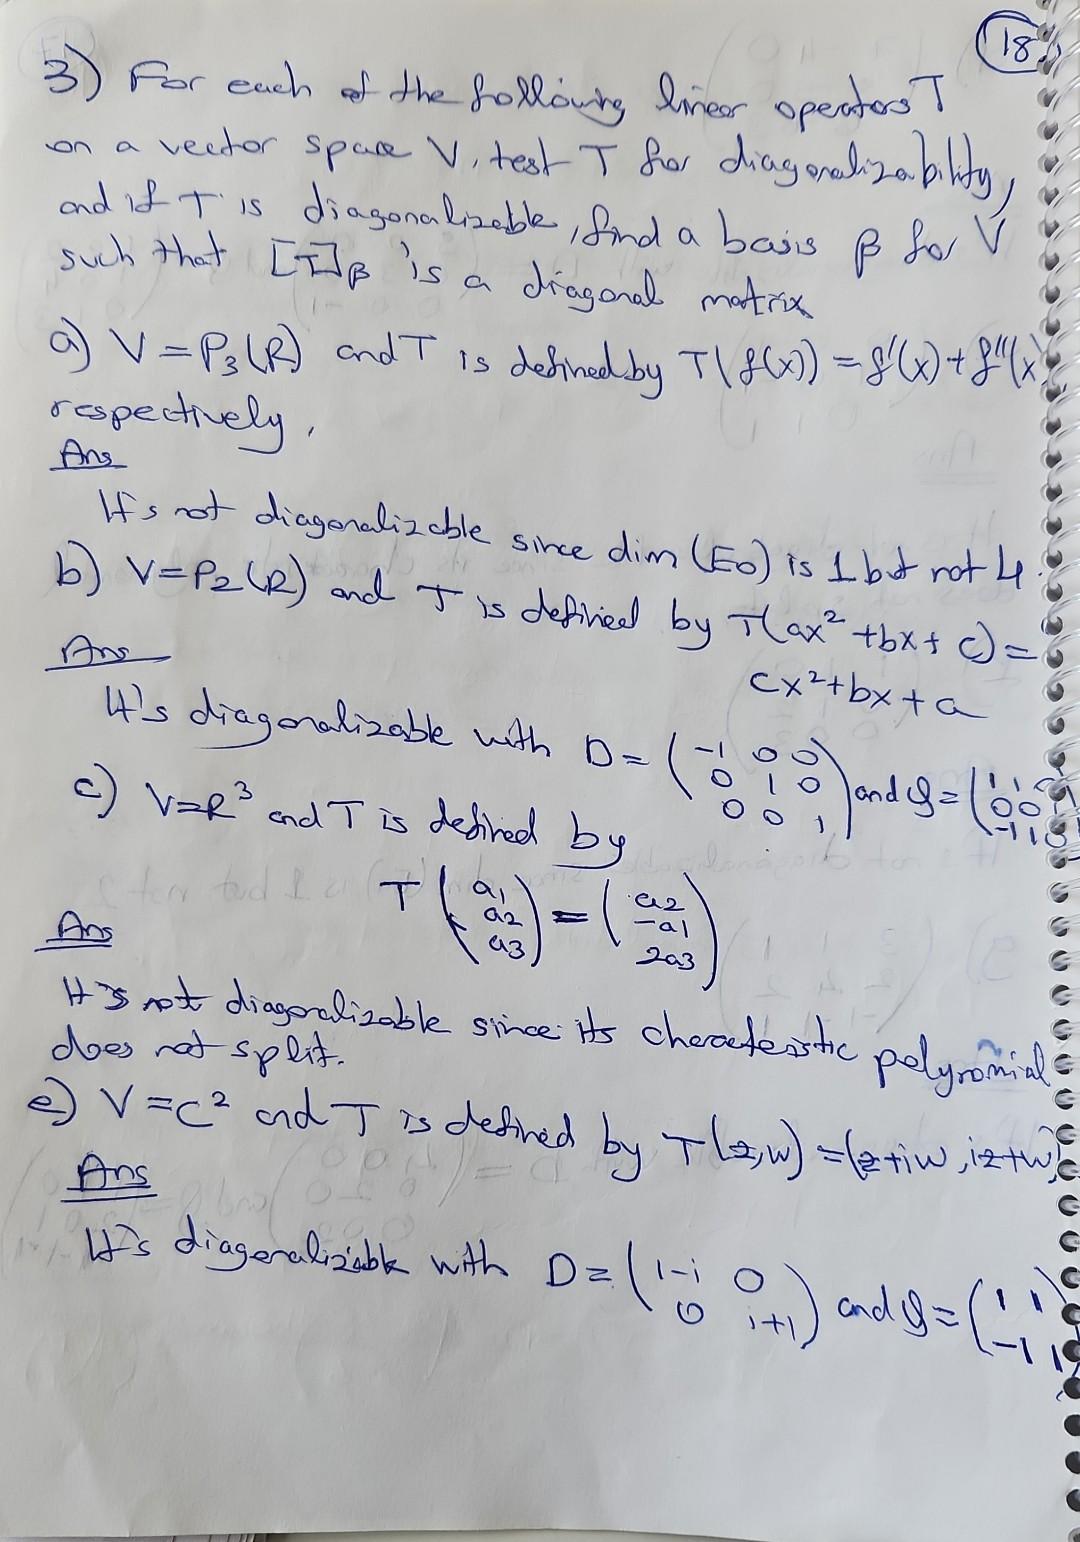 18
3) For each of the following linear operators T
on a vector space V, test T for diagonalizability,
and if T is diagonalizable, find a basis β for V
such that [T]β is a diagonal matrix
a) V = P3(R) and T is defined by T(f(x)) = f'(x) + f''(x)
respectively,
Ans
It's not diagonalizable since dim (E0) is 1 but not 4.
b) V=P2(R) and T is defined by T(ax² + bx + c) =
cx² + bx + a
Ans
It's diagonalizable with D = (-1 0 0
0 1 0
0 0 1) and Q = (1 1 0
0 0 1
-1 1 0)
c) V=R³ and T is defined by
T (a1
a2
a3) = (a2
-a1
2a3)
Ans
It's not diagonalizable since its characteristic polynomial
does not split.
e) V = C² and T is defined by T(z,w) = (z+iw, iz+w)
Ans
It's diagonalizable with D = (1-i 0
0 i+1) and Q = (1 1
-1 1)